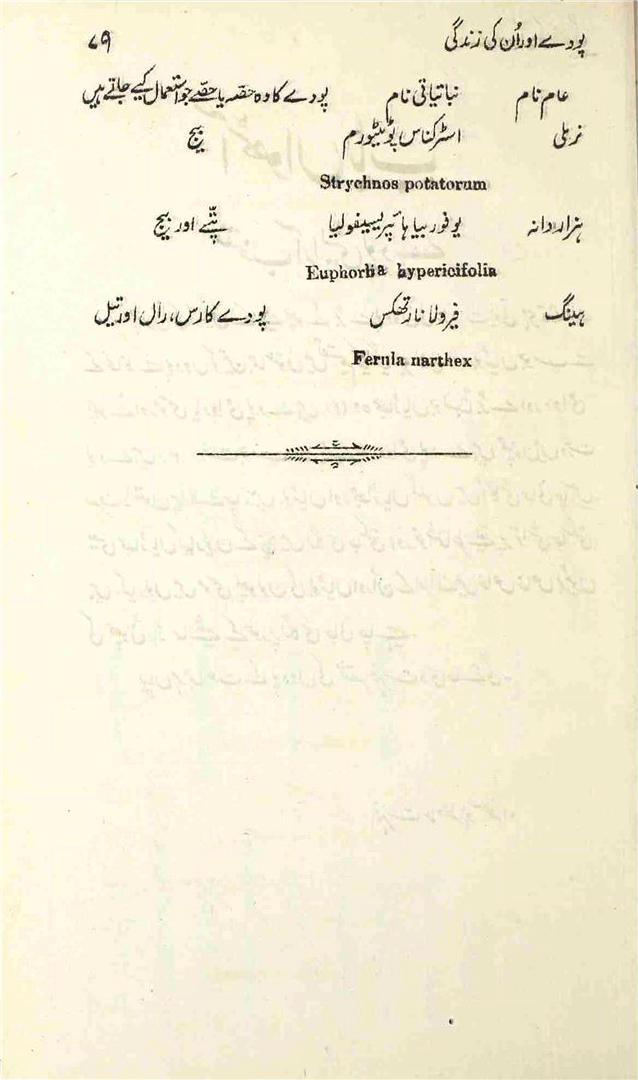 پودے اور اُن کی زندگی ۷۹
عام نام نباتیاتی نام پودے کا وہ حصّہ یا حصّے جو استعمال کیے جاتے ہیں
نربلی اسٹرکناس پوٹیٹورم بیج
Strychnos potatorum
ہزار دانہ یوفوربیا ہائپریسیفولیا پتّے اور بیج
Euphorbia hypericifolia
ہینگ فیرولا نارتھکس پودے کا رس، رال اور تیل
Ferula narthex